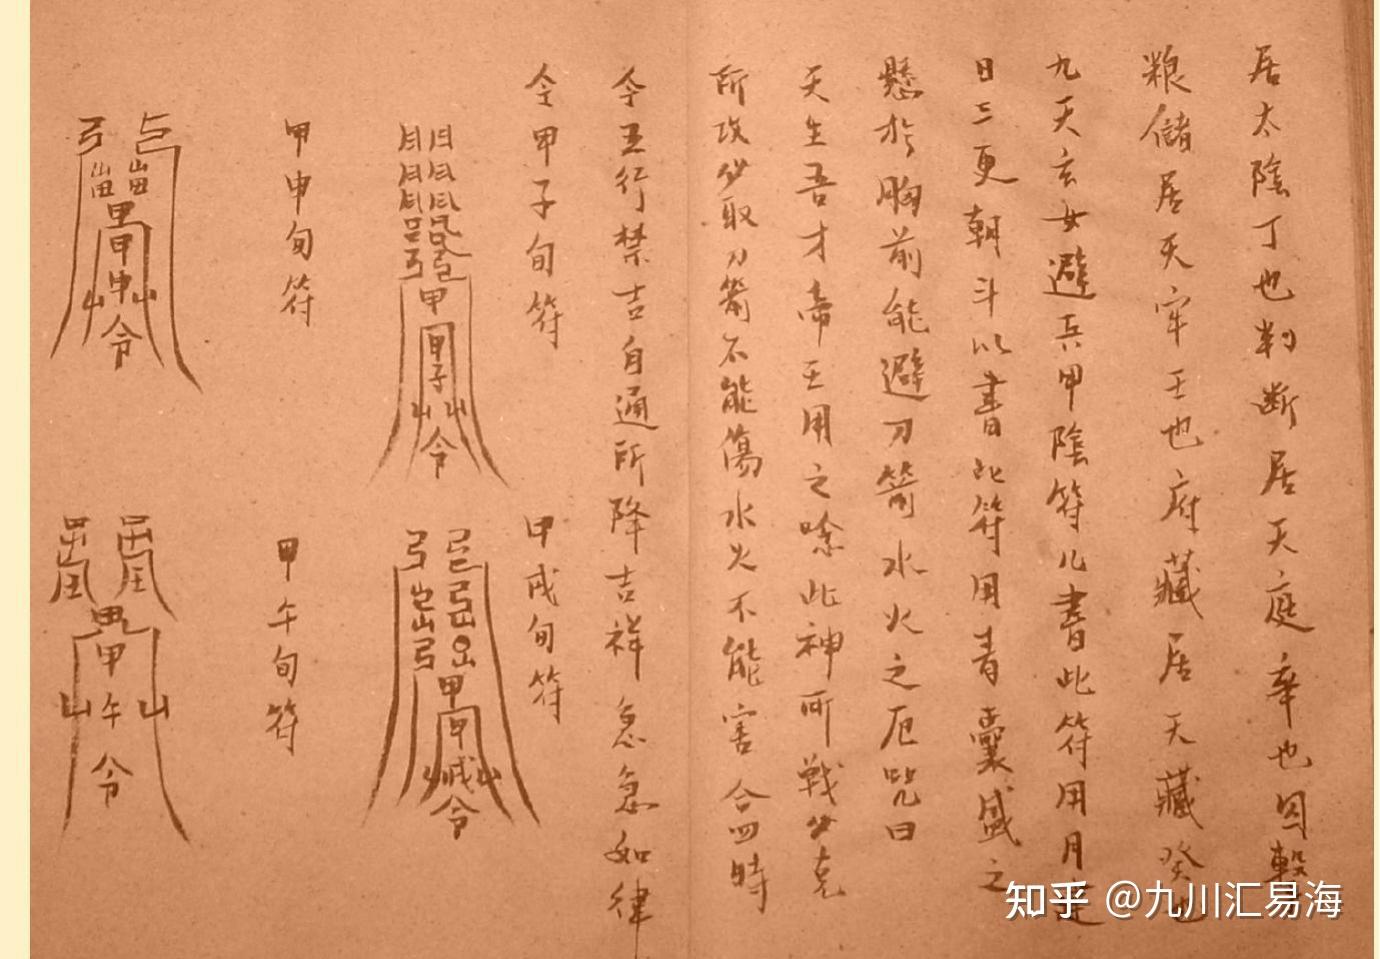 居太陰丁也判断居天庭辛也囚
粮儲居天牢壬也府藏居天藏癸也
九天玄女避兵甲陰符凡書此符用月建
日三更朝斗以書此符用青囊盛之
懸於胸前能避刀箭水火之厄咒曰
天生吾才帝王用之唸此神所戰必克
所攻必取刀箭不能傷水火不能害合四時
今五行禁吉自通所降吉祥急急如律
令甲子旬符
甲
甲子
山山
令
甲戌旬符
弓
弓
甲
甲
山山
令
甲申旬符
弓
甲申
山山
令
甲午旬符
甲午
山山
令
知乎 @九川汇易海